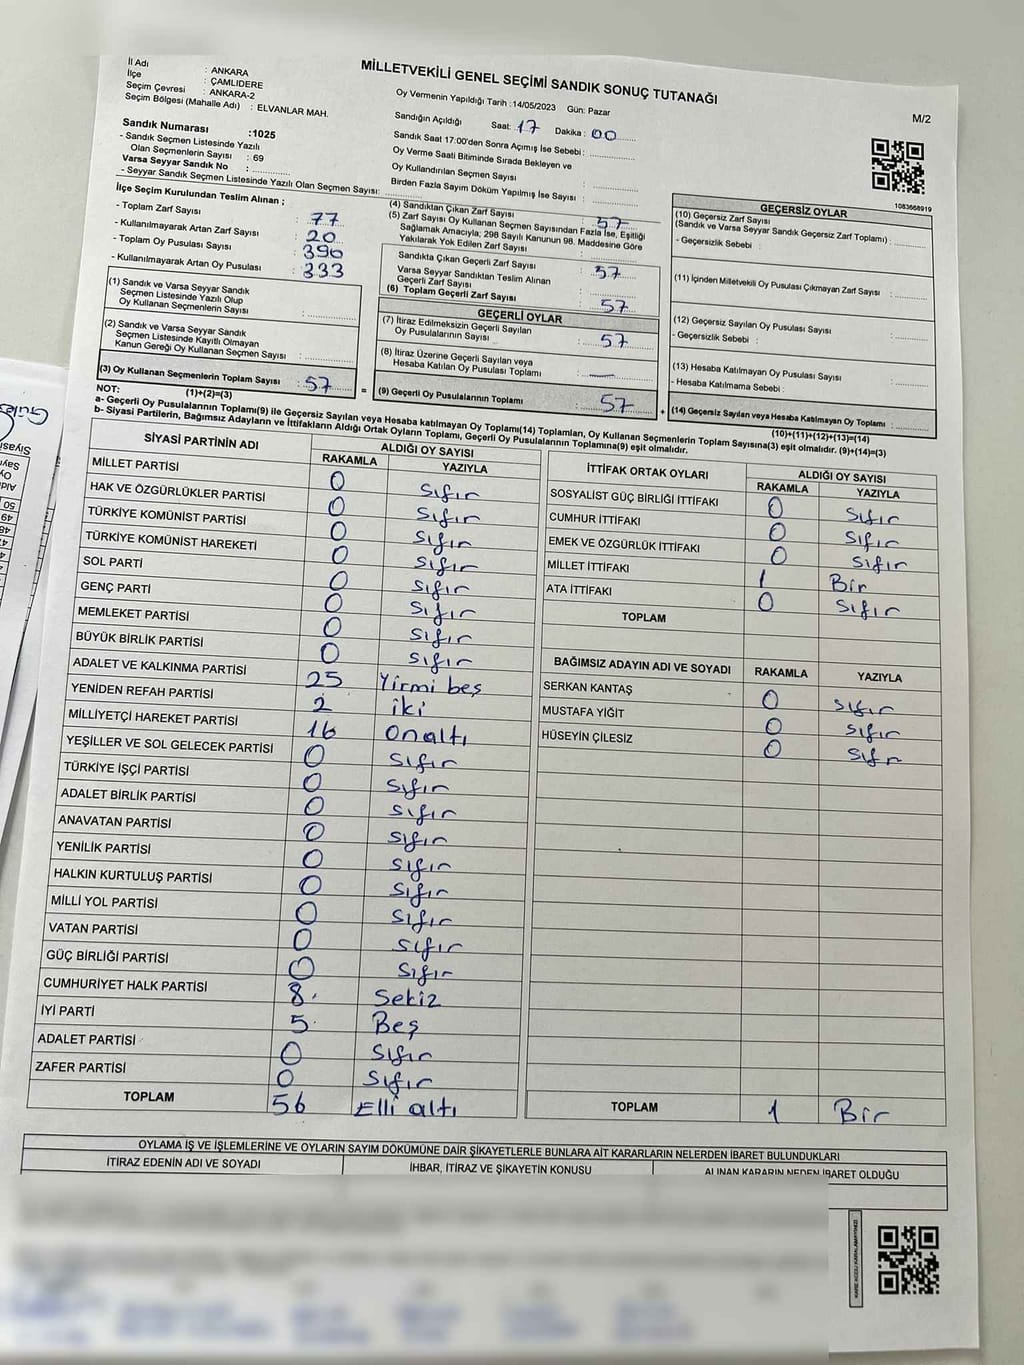 MİLLETVEKİLİ GENEL SEÇİMİ SANDIK SONUÇ TUTANAĞI
M/2
İl Adı : ANKARA
İlçe : ÇAMLIDERE
Seçim Çevresi : ANKARA-2
Seçim Bölgesi (Mahalle Adı) : ELVANLAR MAH.
Sandık Numarası :1025
- Sandık Seçmen Listesinde Yazılı
Olan Seçmenlerin Sayısı : 69
Varsa Seyyar Sandık No :
- Seyyar Sandık Seçmen Listesinde Yazılı Olan Seçmen Sayısı:
Oy Vermenin Yapıldığı Tarih :14/05/2023 Gün: Pazar
Sandığın Açıldığı Saat: 17 Dakika : 00
Sandık Saat 17:00'den Sonra Açımış İse Sebebi :
Oy Verme Saati Bitiminde Sırada Bekleyen ve
Oy Kullandırılan Seçmen Sayısı :
Birden Fazla Sayım Döküm Yapılmış İse Sayısı :
1083668919
İlçe Seçim Kurulundan Teslim Alınan ;
- Toplam Zarf Sayısı : 77
- Kullanılmayarak Artan Zarf Sayısı : 20
- Toplam Oy Pusulası Sayısı : 390
- Kullanılmayarak Artan Oy Pusulası : 333
(1) Sandık ve Varsa Seyyar Sandık
Seçmen Listesinde Yazılı Olup
Oy Kullanan Seçmenlerin Sayısı :
(2) Sandık ve Varsa Seyyar Sandık
Seçmen Listesinde Kayıtlı Olmayan
Kanun Gereği Oy Kullanan Seçmen Sayısı :
(3) Oy Kullanan Seçmenlerin Toplam Sayısı : 57
(1)+(2)=(3)
(4) Sandıktan Çıkan Zarf Sayısı : 57
(5) Zarf Sayısı Oy Kullanan Seçmen Sayısından Fazla İse, Eşitliği
Sağlamak Amacıyla, 298 Sayılı Kanunun 98. Maddesine Göre
Yakılarak Yok Edilen Zarf Sayısı :
Sandıkta Çıkan Geçerli Zarf Sayısı : 57
Varsa Seyyar Sandıktan Teslim Alınan
Geçerli Zarf Sayısı :
(6) Toplam Geçerli Zarf Sayısı : 57
GEÇERLİ OYLAR
(7) İtiraz Edilmeksizin Geçerli Sayılan
Oy Pusulalarının Sayısı : 57
(8) İtiraz Üzerine Geçerli Sayılan veya
Hesaba Katılan Oy Pusulası Toplamı : —
= (9) Geçerli Oy Pusulalarının Toplamı : 57
GEÇERSİZ OYLAR
(10) Geçersiz Zarf Sayısı
(Sandık ve Varsa Seyyar Sandık Geçersiz Zarf Toplamı) :
- Geçersizlik Sebebi :
(11) İçinden Milletvekili Oy Pusulası Çıkmayan Zarf Sayısı :
(12) Geçersiz Sayılan Oy Pusulası Sayısı :
- Geçersizlik Sebebi :
(13) Hesaba Katılmayan Oy Pusulası Sayısı :
- Hesaba Katılmama Sebebi :
+ (14) Geçersiz Sayılan veya Hesaba Katılmayan Oy Toplamı :
(10)+(11)+(12)+(13)=(14)
NOT:
a- Geçerli Oy Pusulalarının Toplamı(9) ile Geçersiz Sayılan veya Hesaba katılmayan Oy Toplamı(14) Toplamları, Oy Kullanan Seçmenlerin Toplam Sayısına(3) eşit olmalıdır. (9)+(14)=(3)
b- Siyasi Partilerin, Bağımsız Adayların ve İttifakların Aldığı Ortak Oyların Toplamı, Geçerli Oy Pusulalarının Toplamına(9) eşit olmalıdır.
SİYASİ PARTİNİN ADI ALDIĞI OY SAYISI
RAKAMLA YAZIYLA
MİLLET PARTİSİ 0 Sıfır
HAK VE ÖZGÜRLÜKLER PARTİSİ 0 Sıfır
TÜRKİYE KOMÜNİST PARTİSİ 0 Sıfır
TÜRKİYE KOMÜNİST HAREKETİ 0 Sıfır
SOL PARTİ 0 Sıfır
GENÇ PARTİ 0 Sıfır
MEMLEKET PARTİSİ 0 Sıfır
BÜYÜK BİRLİK PARTİSİ 0 Sıfır
ADALET VE KALKINMA PARTİSİ 25 Yirmi beş
YENİDEN REFAH PARTİSİ 2 iki
MİLLİYETÇİ HAREKET PARTİSİ 16 Onaltı
YEŞİLLER VE SOL GELECEK PARTİSİ 0 Sıfır
TÜRKİYE İŞÇİ PARTİSİ 0 Sıfır
ADALET BİRLİK PARTİSİ 0 Sıfır
ANAVATAN PARTİSİ 0 Sıfır
YENİLİK PARTİSİ 0 Sıfır
HALKIN KURTULUŞ PARTİSİ 0 Sıfır
MİLLİ YOL PARTİSİ 0 Sıfır
VATAN PARTİSİ 0 Sıfır
GÜÇ BİRLİĞİ PARTİSİ 0 Sıfır
CUMHURİYET HALK PARTİSİ 8 Sekiz
İYİ PARTİ 5 Beş
ADALET PARTİSİ 0 Sıfır
ZAFER PARTİSİ 0 Sıfır
TOPLAM 56 Elli altı
İTTİFAK ORTAK OYLARI ALDIĞI OY SAYISI
RAKAMLA YAZIYLA
SOSYALİST GÜÇ BİRLİĞİ İTTİFAKI 0 Sıfır
CUMHUR İTTİFAKI 0 Sıfır
EMEK VE ÖZGÜRLÜK İTTİFAKI 0 Sıfır
MİLLET İTTİFAKI 1 Bir
ATA İTTİFAKI 0 Sıfır
TOPLAM
BAĞIMSIZ ADAYIN ADI VE SOYADI RAKAMLA YAZIYLA
SERKAN KANTAŞ 0 Sıfır
MUSTAFA YİĞİT 0 Sıfır
HÜSEYİN ÇİLESİZ 0 Sıfr
TOPLAM 1 Bir
OYLAMA İŞ VE İŞLEMLERİNE VE OYLARIN SAYIM DÖKÜMÜNE DAİR ŞİKAYETLERLE BUNLARA AİT KARARLARIN NELERDEN İBARET BULUNDUKLARI
İTİRAZ EDENİN ADI VE SOYADI İHBAR, İTİRAZ VE ŞİKAYETİN KONUSU ALINAN KARARIN NEDEN İBARET OLDUĞU